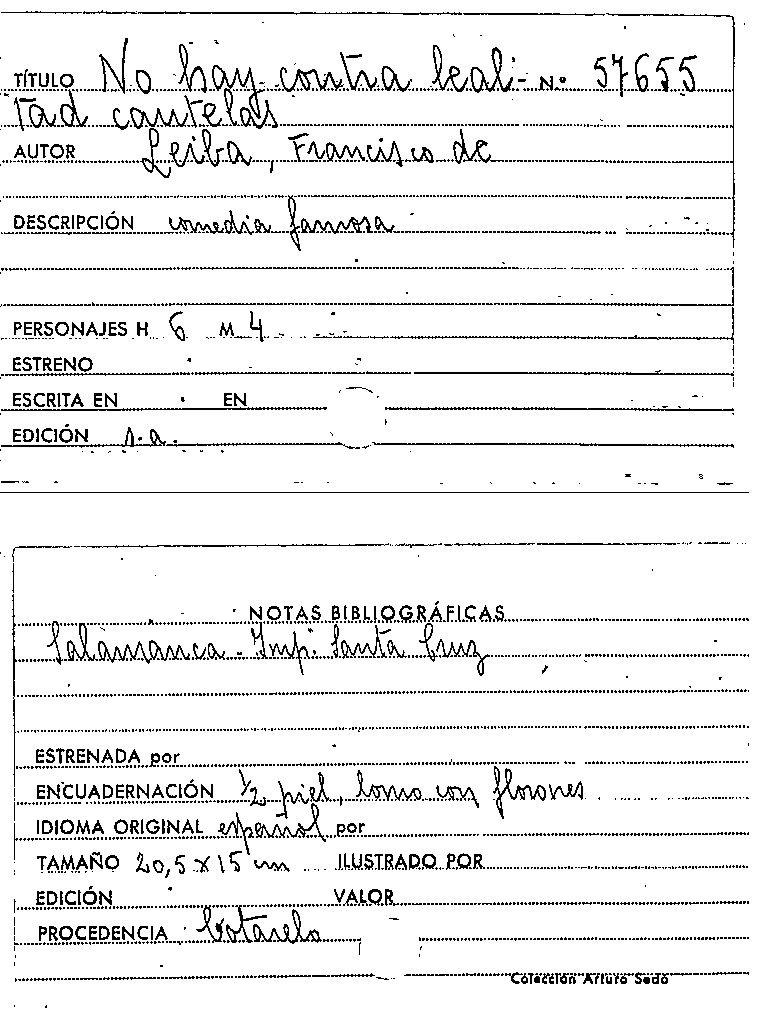 TÍTULO No hay contra leal- N.º 57655
tad cautelas
AUTOR Leiba, Francisco de
DESCRIPCIÓN comedia famosa
PERSONAJES H 6 M 4
ESTRENO
ESCRITA EN EN
EDICIÓN s.a.
NOTAS BIBLIOGRÁFICAS
Salamanca - Imp. Santa Cruz
ESTRENADA por
ENCUADERNACIÓN ½ piel, lomo con florones
IDIOMA ORIGINAL español por
TAMAÑO 20,5 x 15 cm ILUSTRADO POR
EDICIÓN VALOR
PROCEDENCIA Cotarelo
Colección Arturo Sedó